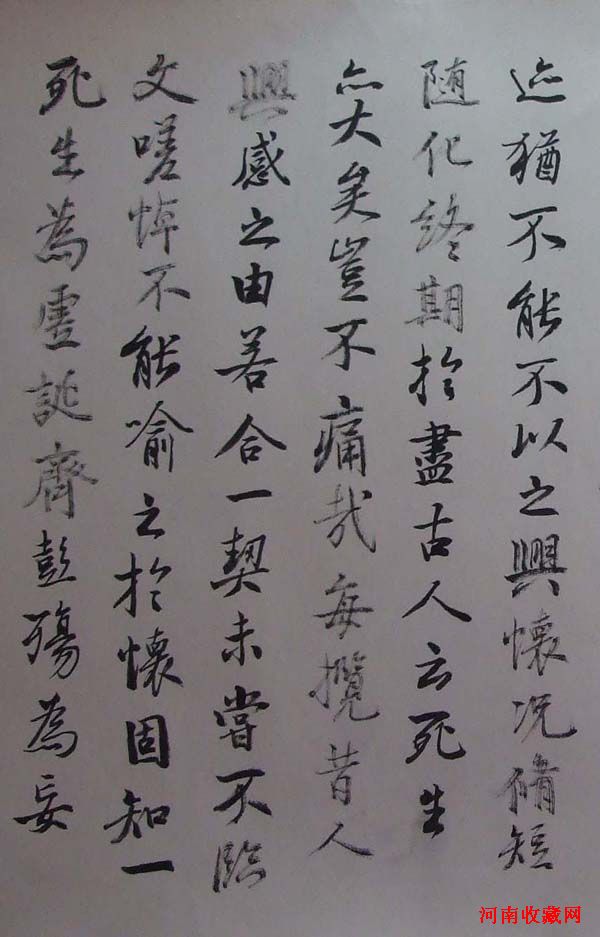 迹猶不能不以之興懷况脩短
随化終期於盡古人云死生
亦大矣豈不痛哉每攬昔人
興感之由若合一契未嘗不臨
文嗟悼不能喻之於懷固知一
死生為虛誕齊彭殤為妄
河南收藏网